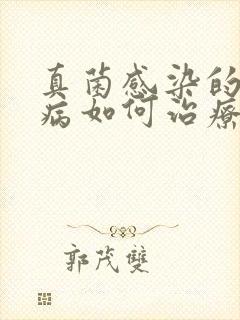 真菌感染的
病如何治療
郭茂雙